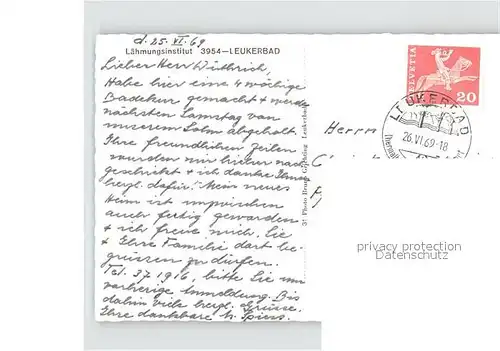 d. 25. VI. 69
Lähmungsinstitut 3954—LEUKERBAD
Lieber Herr Wüthrich,
Habe hier eine 4 wöchige
Badekur gemacht & werde
nächsten Samstag von
unserem Sohn abgeholt.
Ihre freundlichen Zeilen
wurden mir hieher nach
geschickt & ich danke Ihnen
herzl. dafür. Mein neues
Heim ist inzwischen
auch fertig geworden
& ich freue mich, Sie
& Ihre Familie dort be-
grüssen zu dürfen.
Tel. 37 19 16, bitte Sie um
vorherige Anmeldung. Bis
dahin viele herzl. Grüsse.
Ihre dankbare H. Spiess.
Photo Leukerbad
Herrn
HELVETIA
20
LEUKERBAD
26.VI.69-18
privacy protection
Datenschutz